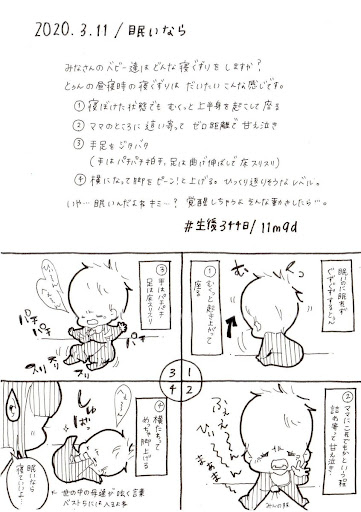 2020.3.11/眠いなら
みなさんのベビー達はどんな寝ぐずりをしますか？
とぅんの昼夜時の寝ぐずりはだいたいこんな感じです。
① 寝ぼけた状態でもむくっと上半身を起こして座る
② ママのところに這い寄ってゼロ距離で甘え泣き
③ 手足をジタバタ
(手はパチパチ拍手、足は曲げ伸ばしで床スリスリ)
④ 横になって脚をピーン！と上げる。ひっくり返りそうなレベル。
いや…眠いんだよねキミ…？覚醒しちゃうよそんな動きしたら…。
#生後344日/11m9d
眠いのに眠れず
ぐずぐずするとぅん
① むくっと起き上がって
座る
む
② ママにこれでもかという程
詰め寄って甘え泣き
ふぇぇーん
びぃーーん
まぁまー
みんの妹
③ 手はパチパチ
足は床スリスリ
パチ
パチ
スリ
スリ
④ 横たわって
めっちゃ脚上げる
しゅばっ
眠いなら
寝ていいよ
世の中の母達が呟く言葉
ベスト5には入るよね
3 1
4 2